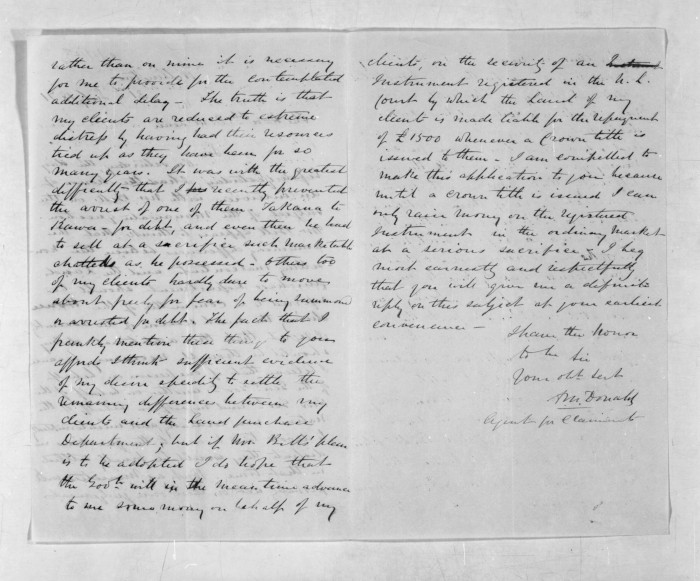 rather than on mine it is necessary
for me to provide for the contemplated
additional delay — The truth is that
my clients are reduced to extreme
distress by having had their resources
tied up as they have been for so
many years. It was with the greatest
difficulty that I recently prevented
the arrest of one of them — Takana te
Kawa — for debt, and even then he had
to sell at a sacrifice such marketable
chattels as he possessed. Others too
of my clients hardly dare to move
about freely for fear of being summoned
or arrested for debt. The fact that I
frankly mention these things to you
affords I think sufficient evidence
of my desire speedily to settle the
remaining differences between my
clients and the Land purchase
Department, but if Mr plan
is to be adopted I do hope that
the Govt. will in the meantime advance
to me some money on behalf of my
clients, on the security of an
Instrument registered in the N. L.
Court by which the Land of my
clients is made liable for the repayment
of £1500 whenever a Crown title is
issued to them — I am compelled to
make this application to you because
until a Crown title is issued I can
only raise money on the registered
Instrument in the ordinary market
at a serious sacrifice — I beg
most earnestly and respectfully
that you will give me a definite
reply on this subject at your earliest
convenience —
I have the honor
to be Sir
Your obt Sert
McDonald
Agent for Claimants